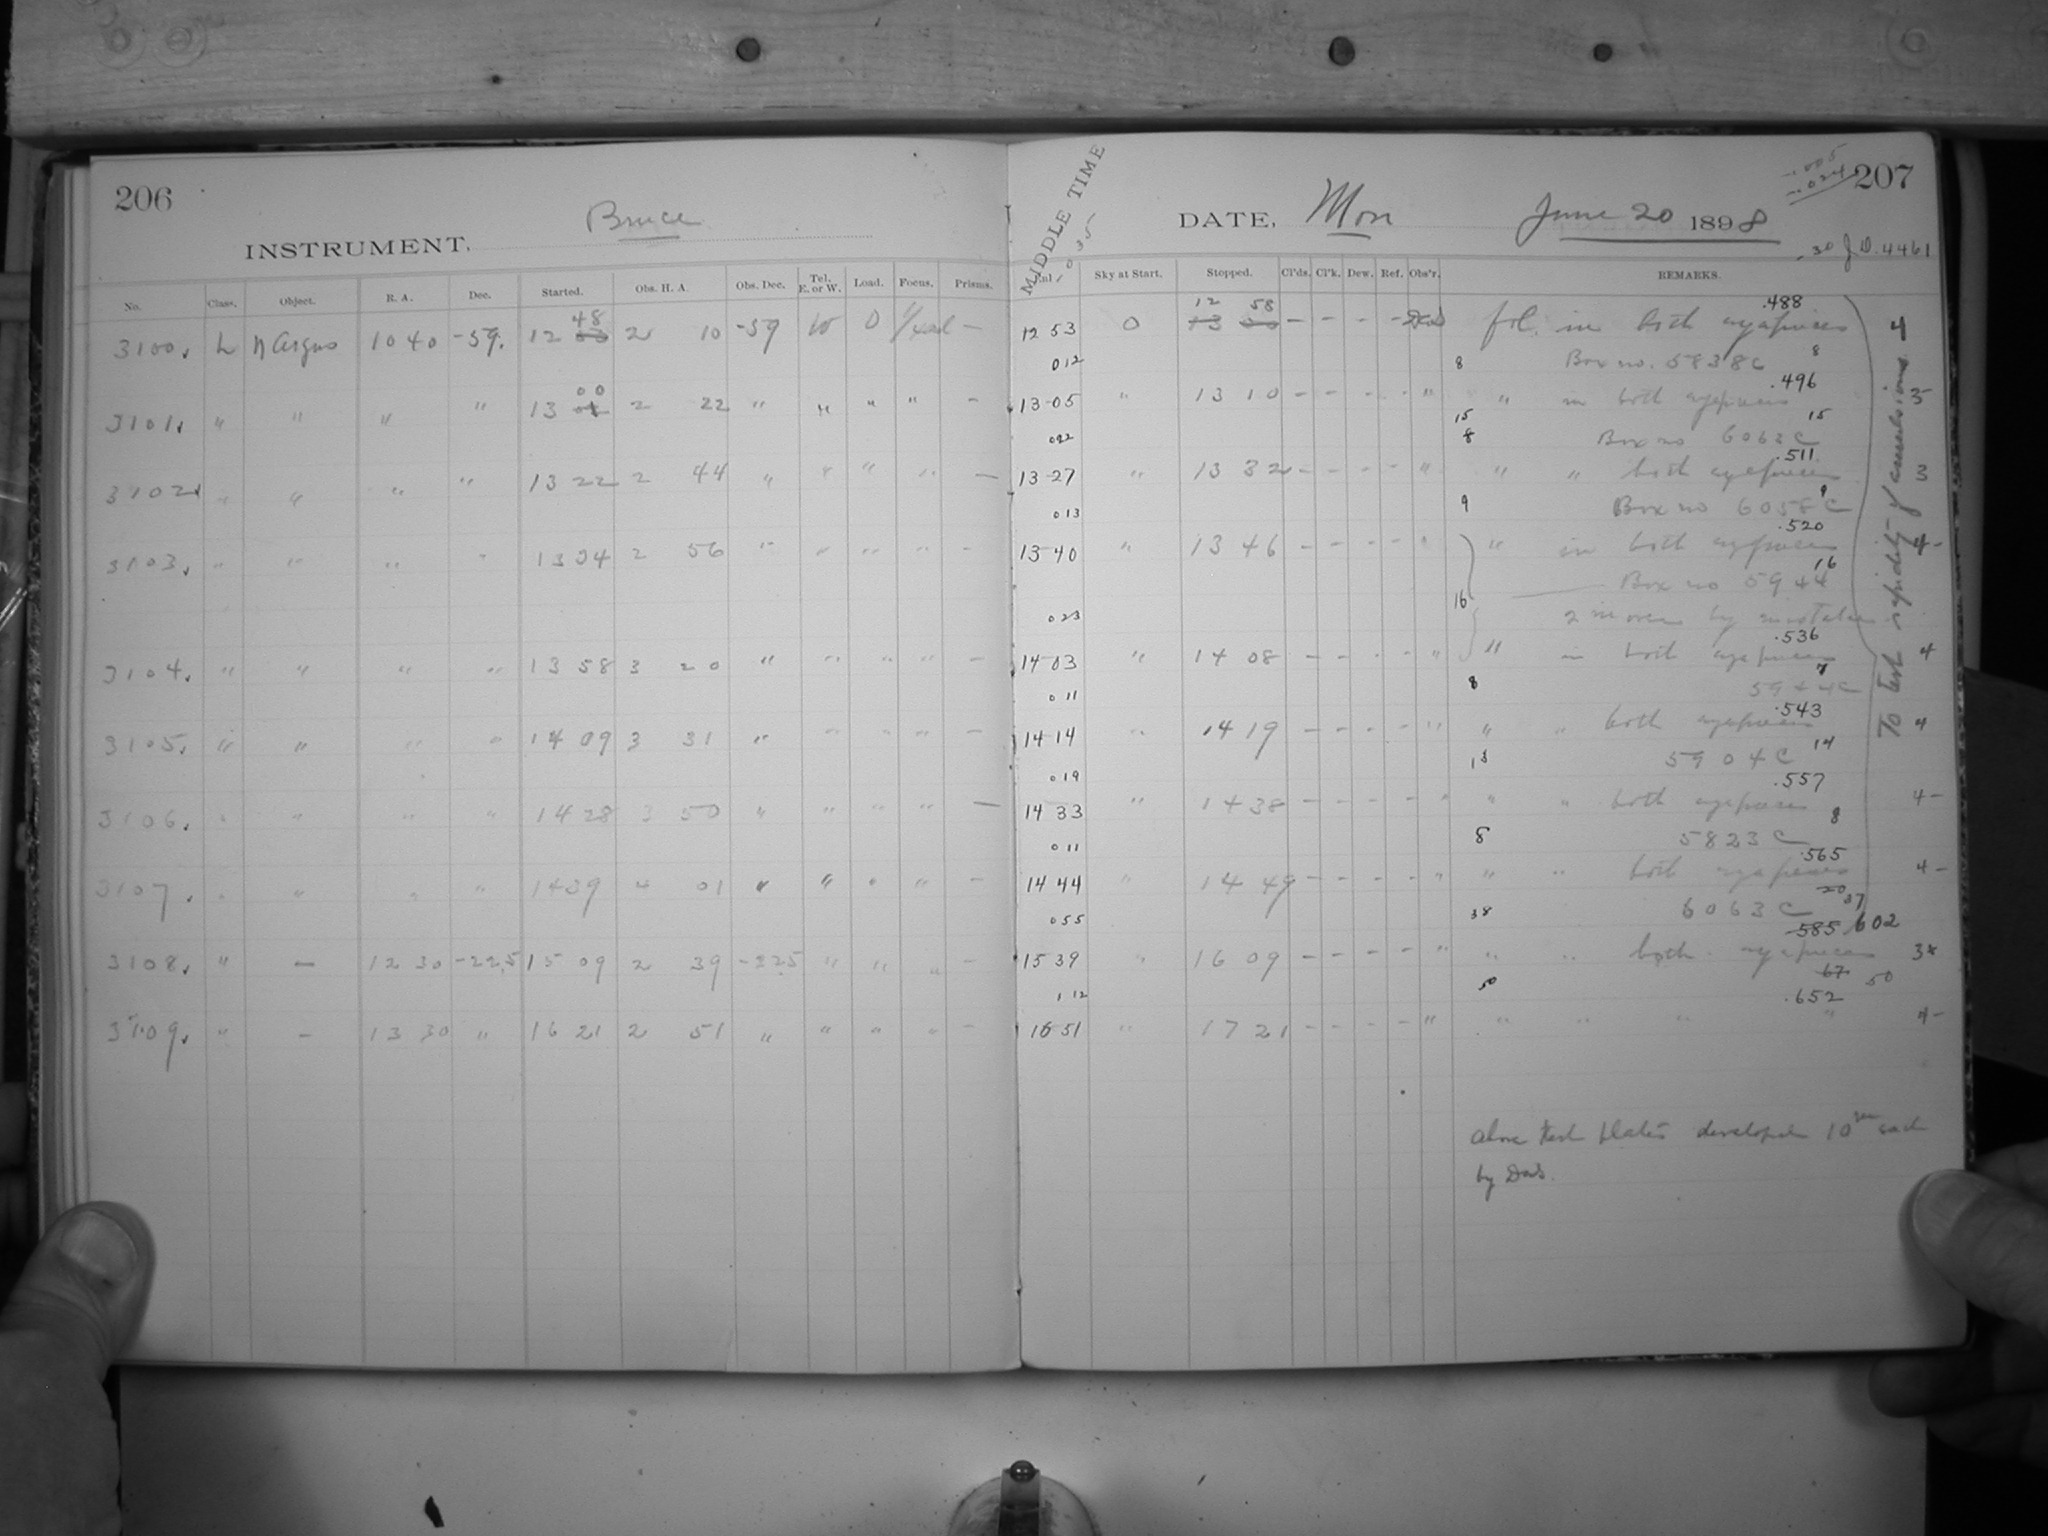 206
Bruce
INSTRUMENT,
No. Class. Object. R. A. Dec. Started. Obs. H. A. Obs. Dec. Tel. E. or W. Load. Focus. Prisms.
48
3100. L η Argus 1040 -59. 12 2 10 -59 W 0 —
00
3101. " " " " 13 2 22 " " " " -
3102 " " " " 13 22 2 44 " " " " —
3103. " " " " 13 34 2 56 " " " " -
3104. " " " " 13 58 3 20 " " " " -
3105. " " " " 14 09 3 31 " " " " -
3106. " " " " 14 28 3 50 " " " " —
3107. " " " " 14 39 4 01 " " " " -
3108. " — 12 30 -22.5 15 09 2 39 -22.5 " " " -
3109. " - 13 30 " 16 21 2 51 " " " " -
207
MIDDLE TIME
DATE, Mon June 20 1898
.30 J.D. 4461
Sky at Start. Stopped. Cl'ds. Cl'k. Dew. Ref. Obs'r. REMARKS.
12 58 .488
12 53 0 - - - - fol. in both eyepieces 4
012 8 Box no. 5838C 8
.496
13 05 " 13 10 - - - - " " in both eyepieces 3
15 15
022 8 Box no 6063C
.511
13 27 " 13 32 - - - - " " " both eyepieces 3
013 9 Box no 6058C 9
.520
13 40 " 13 46 - - - - " " in both eyepieces 4-
16
Box no 5944
023 16 2 m over by mistake
.536
14 03 " 14 08 - - - - " " in both eyepieces 4
7
011 8 5944C
.543
14 14 " 14 19 - - - - " " " both eyepieces 4
019 13 5904C 14
.557
14 33 " 14 38 - - - - " " " both eyepieces 4-
011 8 5823C 8
.565
14 44 " 14 49 - - - - " " " both eyepieces 4-
20 37
055 38 6063C
.585 602
15 39 " 16 09 - - - - " " " both eyepieces 3*
67 50
.12 50
.652
16 51 " 17 21 - - - - " " " " " 4-
To test rapidity of emulsions
above test plates developed 10 m each
by